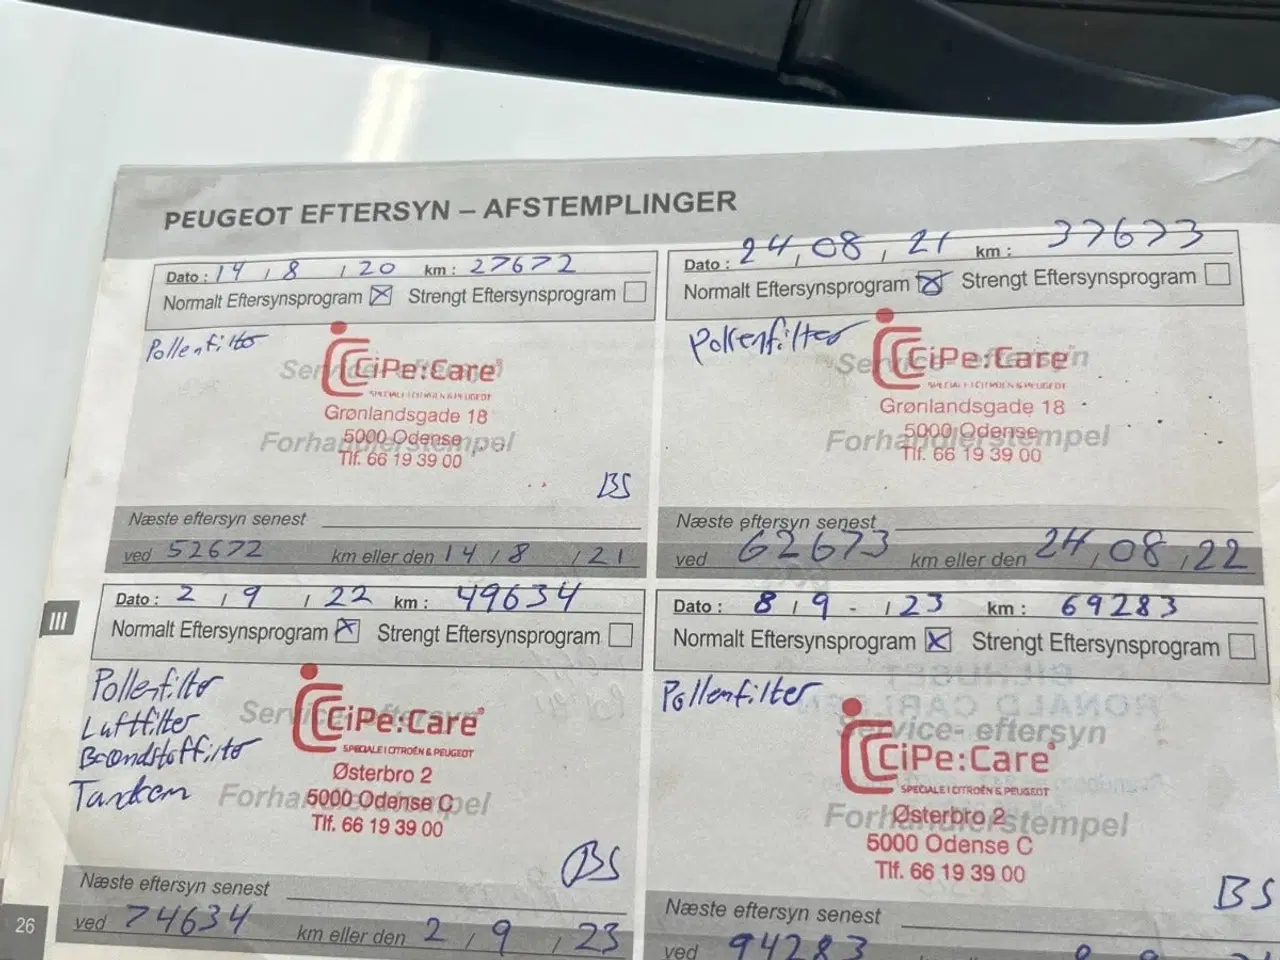 PEUGEOT EFTERSYN – AFSTEMPLINGER
Dato : 14 / 8 / 20 km : 27672
Normalt Eftersynsprogram ☒ Strengt Eftersynsprogram ☐
Pollenfilter
Service- eftersyn
CiPe:Care
SPECIALE I CITROËN & PEUGEOT
Grønlandsgade 18
Forhandlerstempel
5000 Odense
Tlf. 66 19 39 00
BS
Næste eftersyn senest
ved 52672 km eller den 14 / 8 / 21
Dato : 24 / 08 / 21 km : 37673
Normalt Eftersynsprogram ☒ Strengt Eftersynsprogram ☐
Pollenfilter
Service- eftersyn
CiPe:Care
SPECIALE I CITROËN & PEUGEOT
Grønlandsgade 18
5000 Odense
Forhandlerstempel
Tlf. 66 19 39 00
Næste eftersyn senest
ved 62673 km eller den 24 / 08 / 22
III
Dato : 2 / 9 / 22 km : 49634
Normalt Eftersynsprogram ☒ Strengt Eftersynsprogram ☐
Pollenfilter
Luftfilter
Brændstoffilter
Service- eftersyn
CiPe:Care
SPECIALE I CITROËN & PEUGEOT
Østerbro 2
Forhandlerstempel
5000 Odense C
Tlf. 66 19 39 00
BS
Næste eftersyn senest
ved 74634 km eller den 2 / 9 / 23
Dato : 8 / 9 - / 23 km : 69283
Normalt Eftersynsprogram ☒ Strengt Eftersynsprogram ☐
Pollenfilter
Service- eftersyn
CiPe:Care
SPECIALE I CITROËN & PEUGEOT
Forhandlerstempel
Østerbro 2
5000 Odense C
Tlf. 66 19 39 00
BS
Næste eftersyn senest
ved 94283 km eller den
26